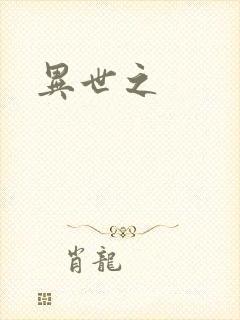 異世之
肖龍